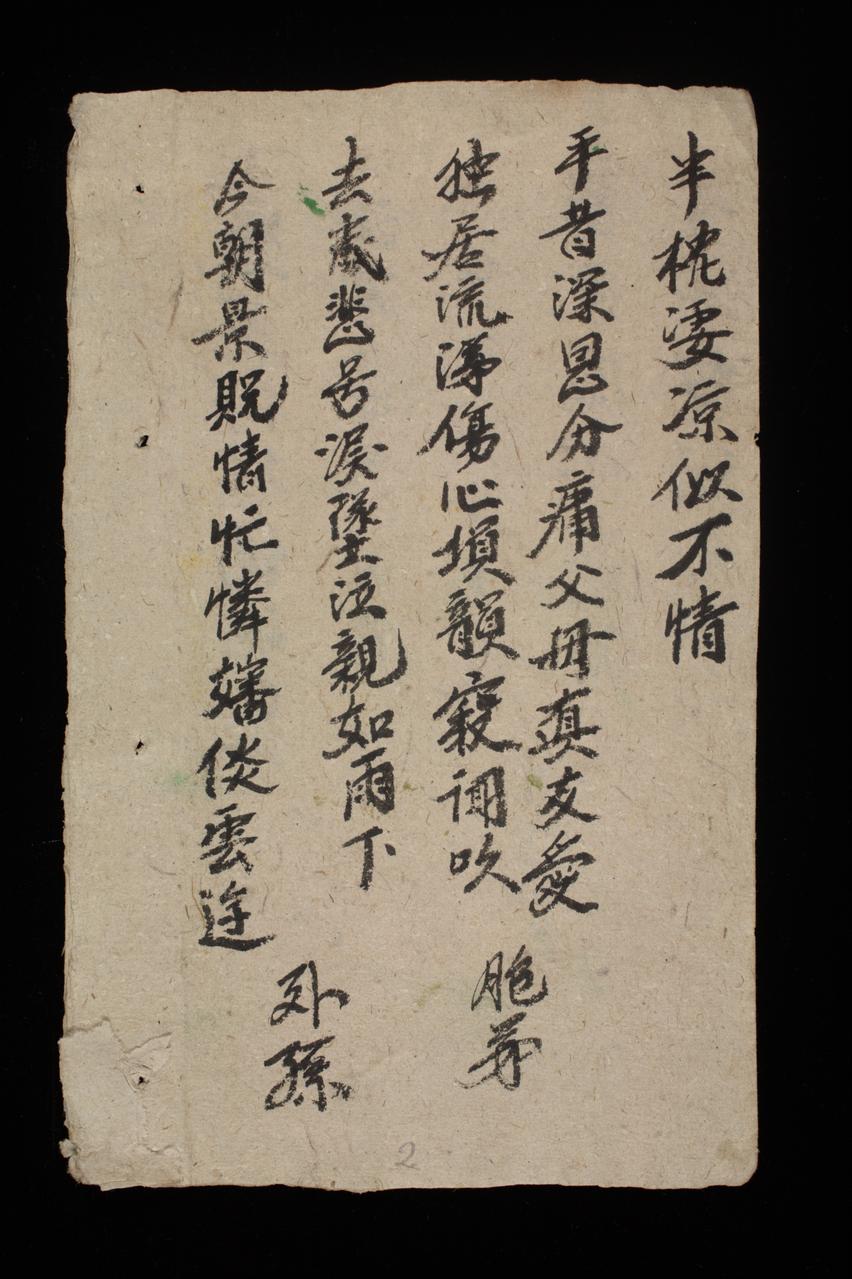 半枕凄凉似不情
平昔深恩分痛父母真友愛
独居流涕傷心埙韻寂谰吹
胞弟
去歲悲号淚墜泣親如雨下
今朝景貺情忙憐旛倐雲迯
外孫
2